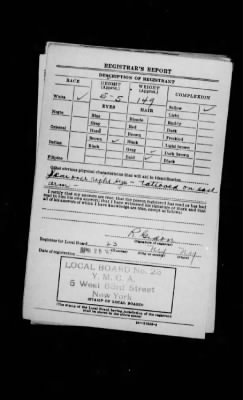 REGISTRAR'S REPORT
DESCRIPTION OF REGISTRANT
RACE HEIGHT (Approx.) WEIGHT (Approx.) COMPLEXION
White ✓ 5-5 149 Sallow ✓
EYES HAIR Light
Negro Blue Blonde Ruddy
Gray Red Dark
Oriental Hazel Brown Freckled
Brown ✓ Black Light brown
Indian Black Gray Dark brown
Filipino Bald Black
Other obvious physical characteristics that will aid in identification
Scar over right eye - tattooed on each
arm -
I certify that my answers are true; that the person registered has read or has had
read to him his own answers; that I have witnessed his signature or mark and that
all of his answers of which I have knowledge are true, except as follows:
(Signature of registrar)
Registrar for Local Board 23
(Number) (City or county) (State)
Date of registration
LOCAL BOARD No. 23
Y. M. C. A.
5 West 63rd Street
New York
(STAMP OF LOCAL BOARD)
(The stamp of the Local Board having jurisdiction of the registrant
shall be placed in the above space.)